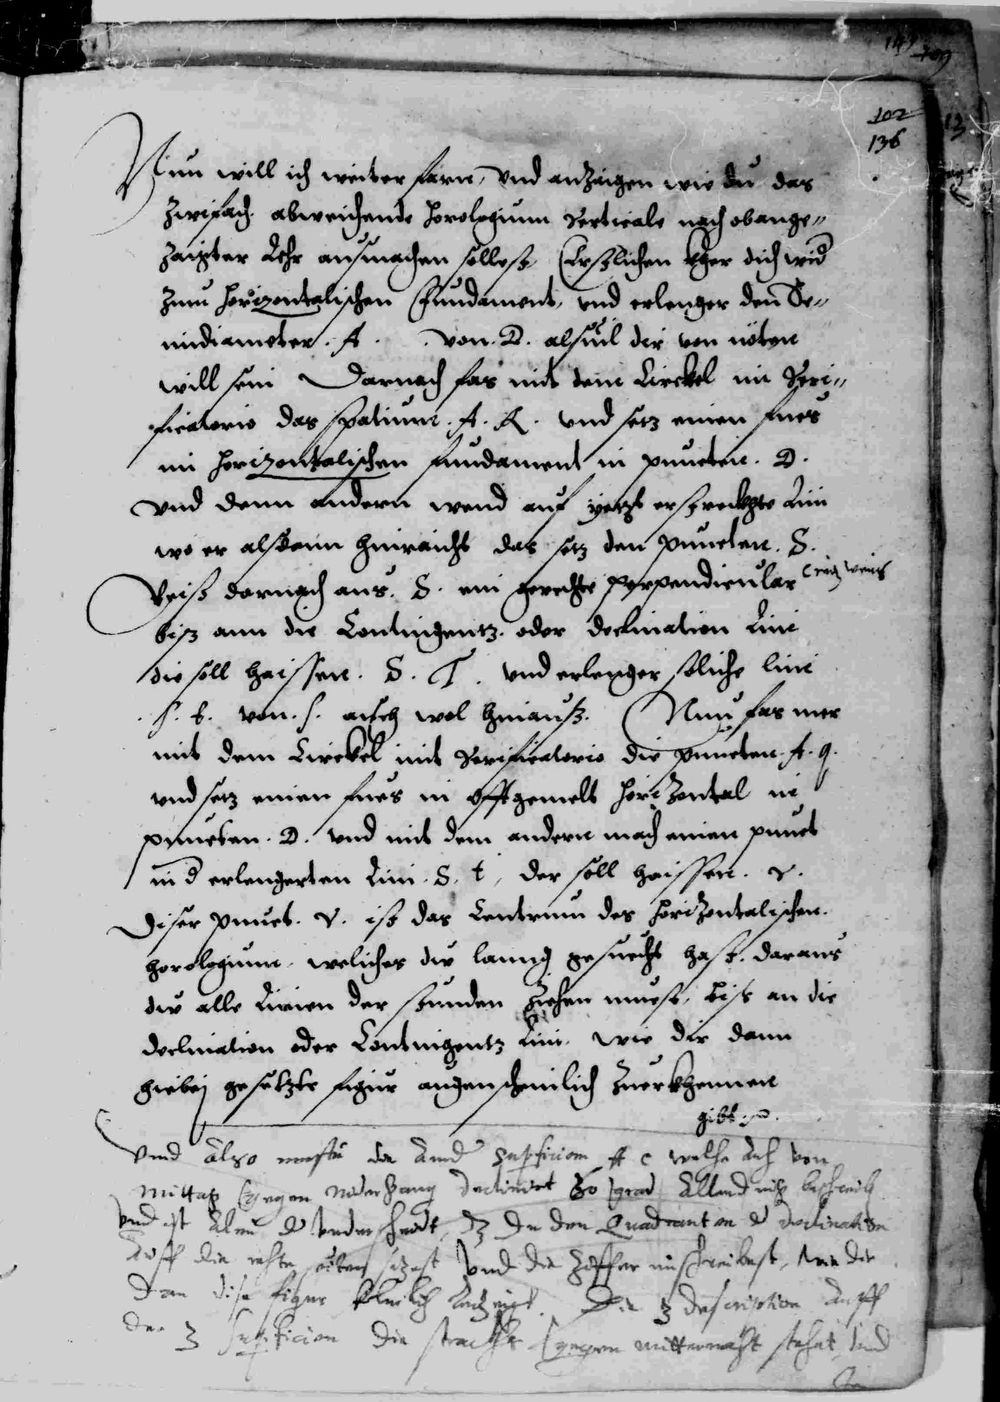 102
136
Nun will ich weiter farn, vnd anzaigen wie du das
zwifach abweichende horologium Verticale nach obange„
zaigter Lehr ausmachen sollest. Erstlichen kher dich wid
zum horizontalischen Fundament, vnd erlenger den Se„
midiameter . A . von . D . alsuil dir von nöten
will sein Darnach fas mit dem Zirckel im Veri„
ficatorio das spatium . A . R . vnd setz einen fues
im horizontalischen fundament in puncten . D .
vnd denn andern wend auf yetzt erstreckhte Lini
wo er alsdann hinraicht das setz den puncten . S .
Reiß darnach aus . S . ein gerechte perpendicular
bisz ann die Contingentz oder declination Lini
die soll haissen . S . T . vnd erlenger solliche lini
. s . t . von . s . auch wol hinauß. Nun fas mer
mit dem Zirckel inn Verificatorio die puncten . A . q .
vnd setz einen fues in offtgemelt horizontal in
puncten . D . vnd mit dem andern mach einen punct
in d erlengerten Lini . S . t , der soll haissen . V .
Diser punct . V . ist das Centrum des horizontalischen
horologium, weliches du lanng gesuecht hast. daraus
du alle Linien der stunden ziehen muest, biß an die
declination oder Contingentz Lini, wie dir dann
hiebej gesetzte figur augenscheinlich zuerkhennen
gibt
Vnd also die superficien welhe sich von
Mittag gegen declinirt 30 grad
vnd ist der vnderschaidt, dz du den Quadranten d declination
Auff die rechte seiten setzest vnd die Ziffer einschreibest, wie dir
dan dise figur klerlich anzeigt. Die 3 description auff
der 3 superficien die stracks gegen mitternacht stehet vnd